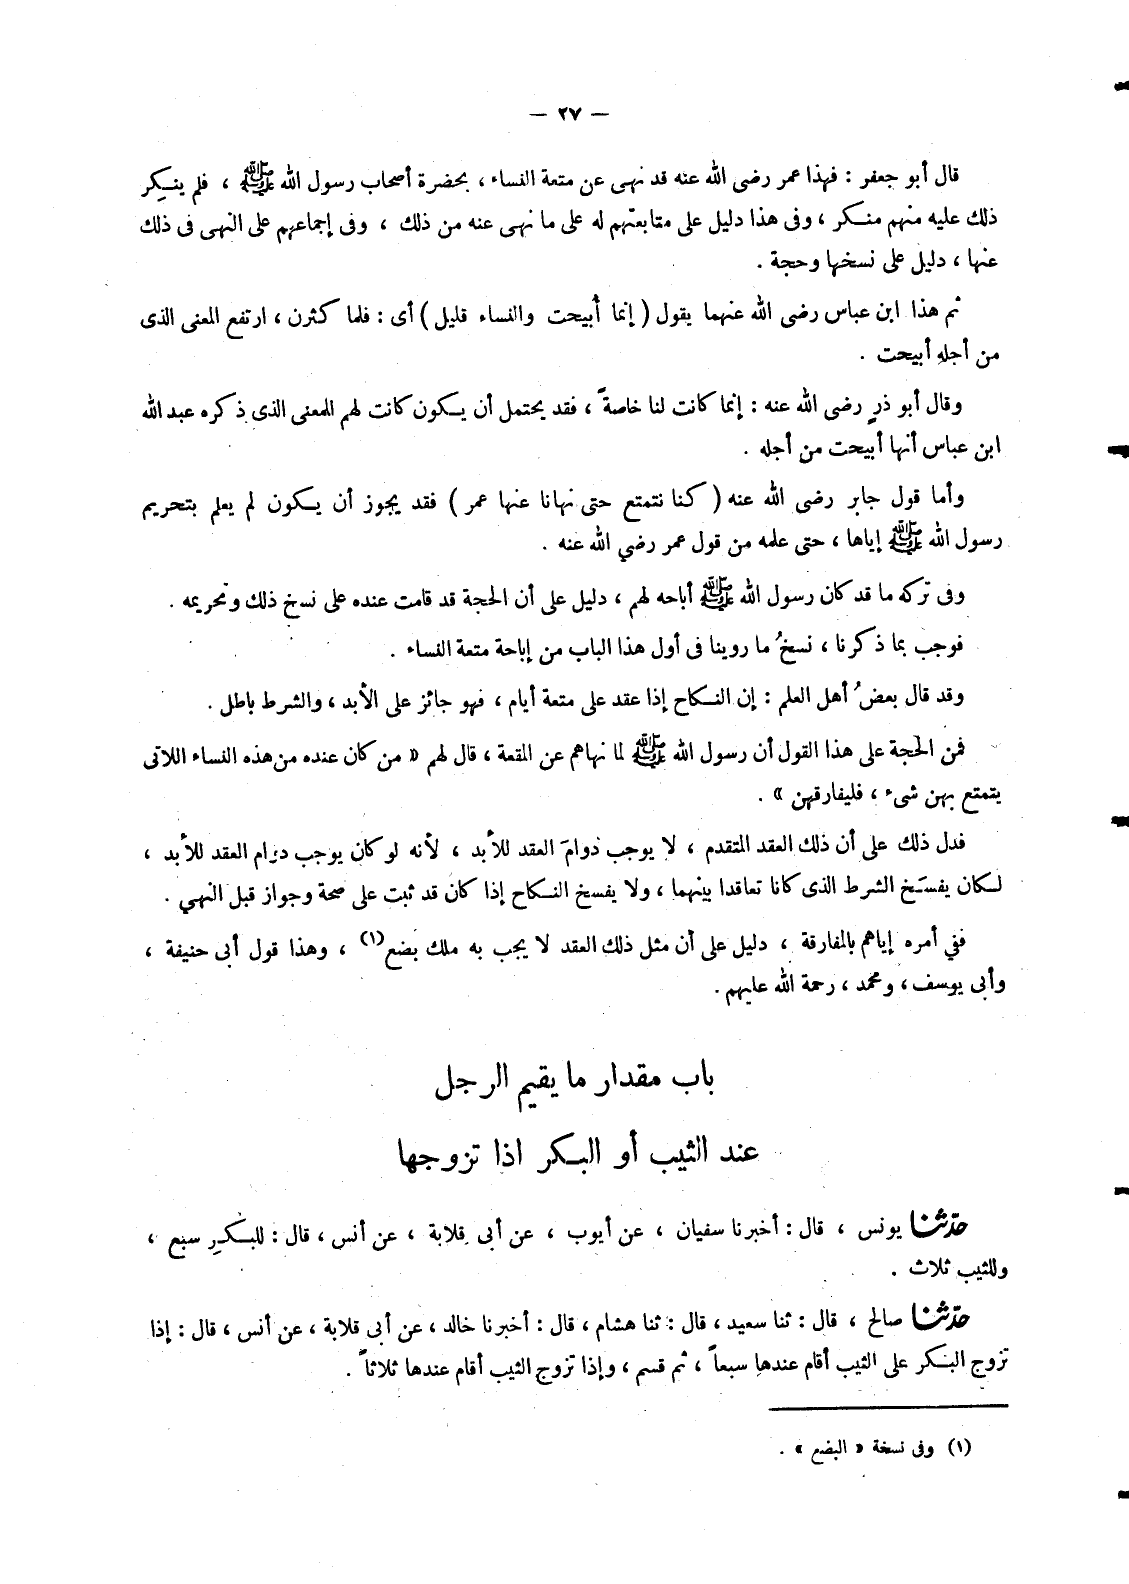 — ٢٧ —
قال أبو جعفر : فهذا عمر رضى الله عنه قد نهى عن متعة النساء ، بحضرة أصحاب رسول الله ﷺ ، فلم ينكر
ذلك عليه منهم منكر ، وفى هذا دليل على متابعتهم له على ما نهى عنه من ذلك ، وفى إجماعهم على النهى فى ذلك
عنها ، دليل على نسخها وحجة .
ثم هذا ابن عباس رضى الله عنهما يقول ( إنما أُبيحت والنساء قليل ) أى : فلما كثرن ، ارتفع المعنى الذى
من أجله أبيحت .
وقال أبو ذرٍ رضى الله عنه : إنما كانت لنا خاصةً ، فقد يحتمل أن يكون كانت لهم للمعنى الذى ذكره عبد الله
ابن عباس أنها أبيحت من أجله .
وأما قول جابر رضى الله عنه ( كنا نتمتع حتى نهانا عنها عمر ) فقد يجوز أن يكون لم يعلم بتحريم
رسول الله ﷺ إياها ، حتى علمه من قول عمر رضي الله عنه .
وفى تركه ما قد كان رسول الله ﷺ أباحه لهم ، دليل على أن الحجة قد قامت عنده على نسخ ذلك وتحريمه .
فوجب بما ذكرنا ، نسخُ ما روينا فى أول هذا الباب من إباحة متعة النساء .
وقد قال بعضُ أهل العلم : إن النكاح إذا عقد على متعة أيام ، فهو جائز على الأبد ، والشرط باطل .
فمن الحجة على هذا القول أن رسول الله ﷺ لما نهاهم عن المتعة ، قال لهم « من كان عنده من هذه النساء اللاتى
يتمتع بهن شىء ، فليفارقهن » .
فدل ذلك على أن ذلك العقد المتقدم ، لا يوجب دوامَ العقد للأبد ، لأنه لو كان يوجب دوام العقد للأبد ،
لكان يفسَخ الشرط الذى كانا تعاقدا بينهما ، ولا يفسخ النكاح إذا كان قد ثبت على صحة وجواز قبل النهي .
ففي أمره إياهم بالمفارقة ، دليل على أن مثل ذلك العقد لا يجب به ملك بضع(١) ، وهذا قول أبى حنيفة ،
وأبى يوسف ، ومحمد ، رحمة الله عليهم .
باب مقدار ما يقيم الرجل
عند الثيب أو البكر اذا تزوجها
حدّثنا يونس ، قال : أخبرنا سفيان ، عن أيوب ، عن أبى قلابة ، عن أنس ، قال : للبكرِ سبع ،
وللثيب ثلاث .
حدّثنا صالح ، قال : ثنا سعيد ، قال : ثنا هشام ، قال : أخبرنا خالد ، عن أبى قلابة ، عن أنس ، قال : إذا
تزوج البكر على الثيب أقام عندها سبعاً ، ثم قسم ، وإذا تزوج الثيب أقام عندها ثلاثاً .
(١) وفى نسخة « البضع » .